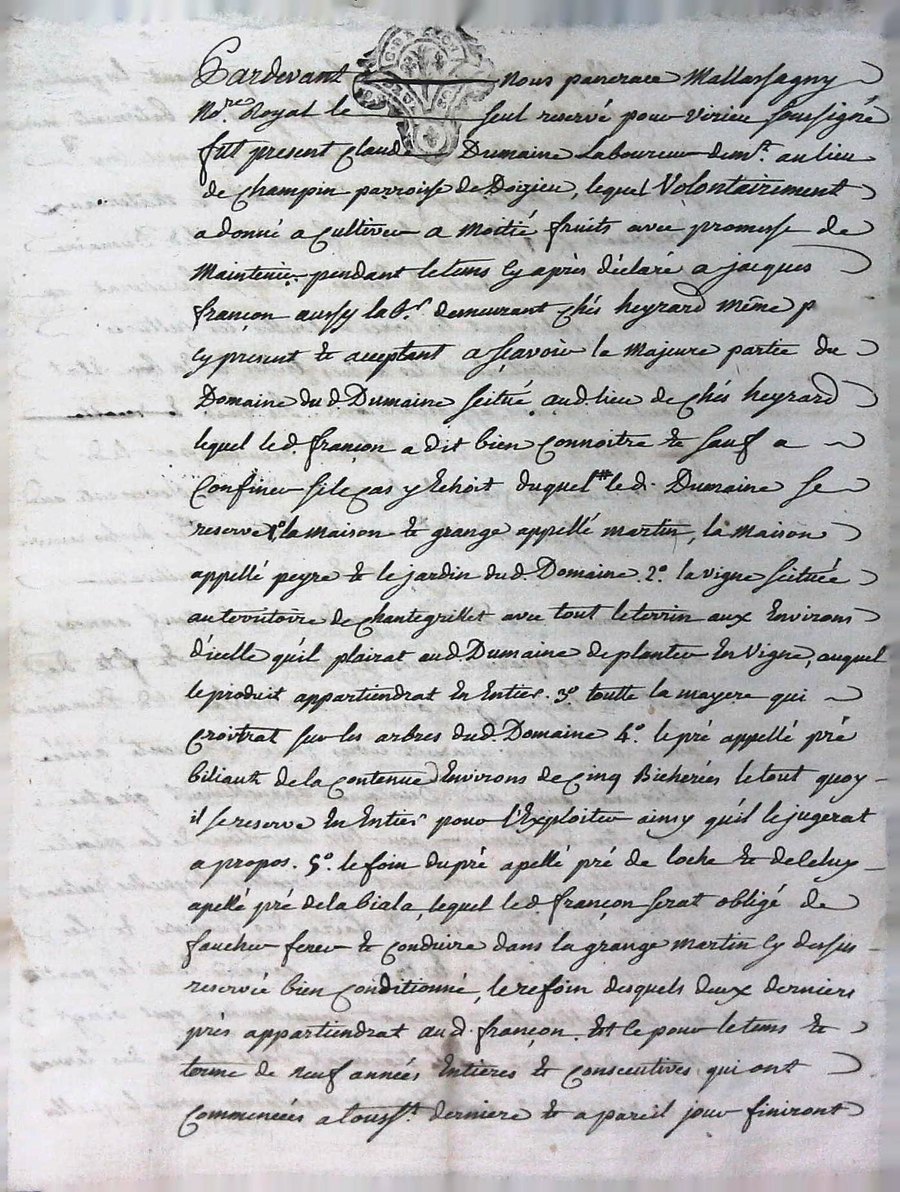 Pardevant nous pancrace Mallassagny
No.re Royal le seul reservé pour virieu soussigné
fut present Claude Dumaine Laboureur dem.t au lieu
de Champin parroisse de Doizieu, lequel Volontairement
a donné a cultiver a moitié fruits avec promesse de
Maintenir pendant le tems cy après déclaré a jacques
françon aussy lab.r demeurant chés heyrard même p
cy present & acceptant a sçavoir la Majeure partie du
Domaine du d. Dumaine scitué aud. lieu de chés heyrard
lequel led. françon a dit bien connoitre & sauf a
Confiner sil cas y Echoit duquel # led. Dumaine se
reserve 1.o la maison & grange appellé martin, la Maison
appellé peyre & le jardin dud. Domaine. 2.o la vigne scituée
au territoire de chantegrillet avec tout le terrin aux Environs
d'icelle qu'il plairat aud. Dumaine de planter En Vigne, auquel
le produit appartiendrat En Entier. 3.o toutte la mayere qui
croitrat sur les arbres dud. Domaine 4.o le pré appellé pré
de la contenue d'Environs de cinq Bicherées le tout quoy
il se reserve En Entier pour l'Exploiter ainsy qu'il le jugerat
a propos. 5.o le foin du pré apellé pré de loche & de celuy
apellé pré de la biala, lequel led. françon serat obligé de
faucher fener & conduire dans la grange martin cy dessus
reservée bien conditionné, le refoin desquels deux derniers
prés appartiendrat aud. françon. Et ce pour le tems &
terme de neuf années Entieres & consecutives qui ont
Commencées a touss.t derniere & a pareil jour finiront